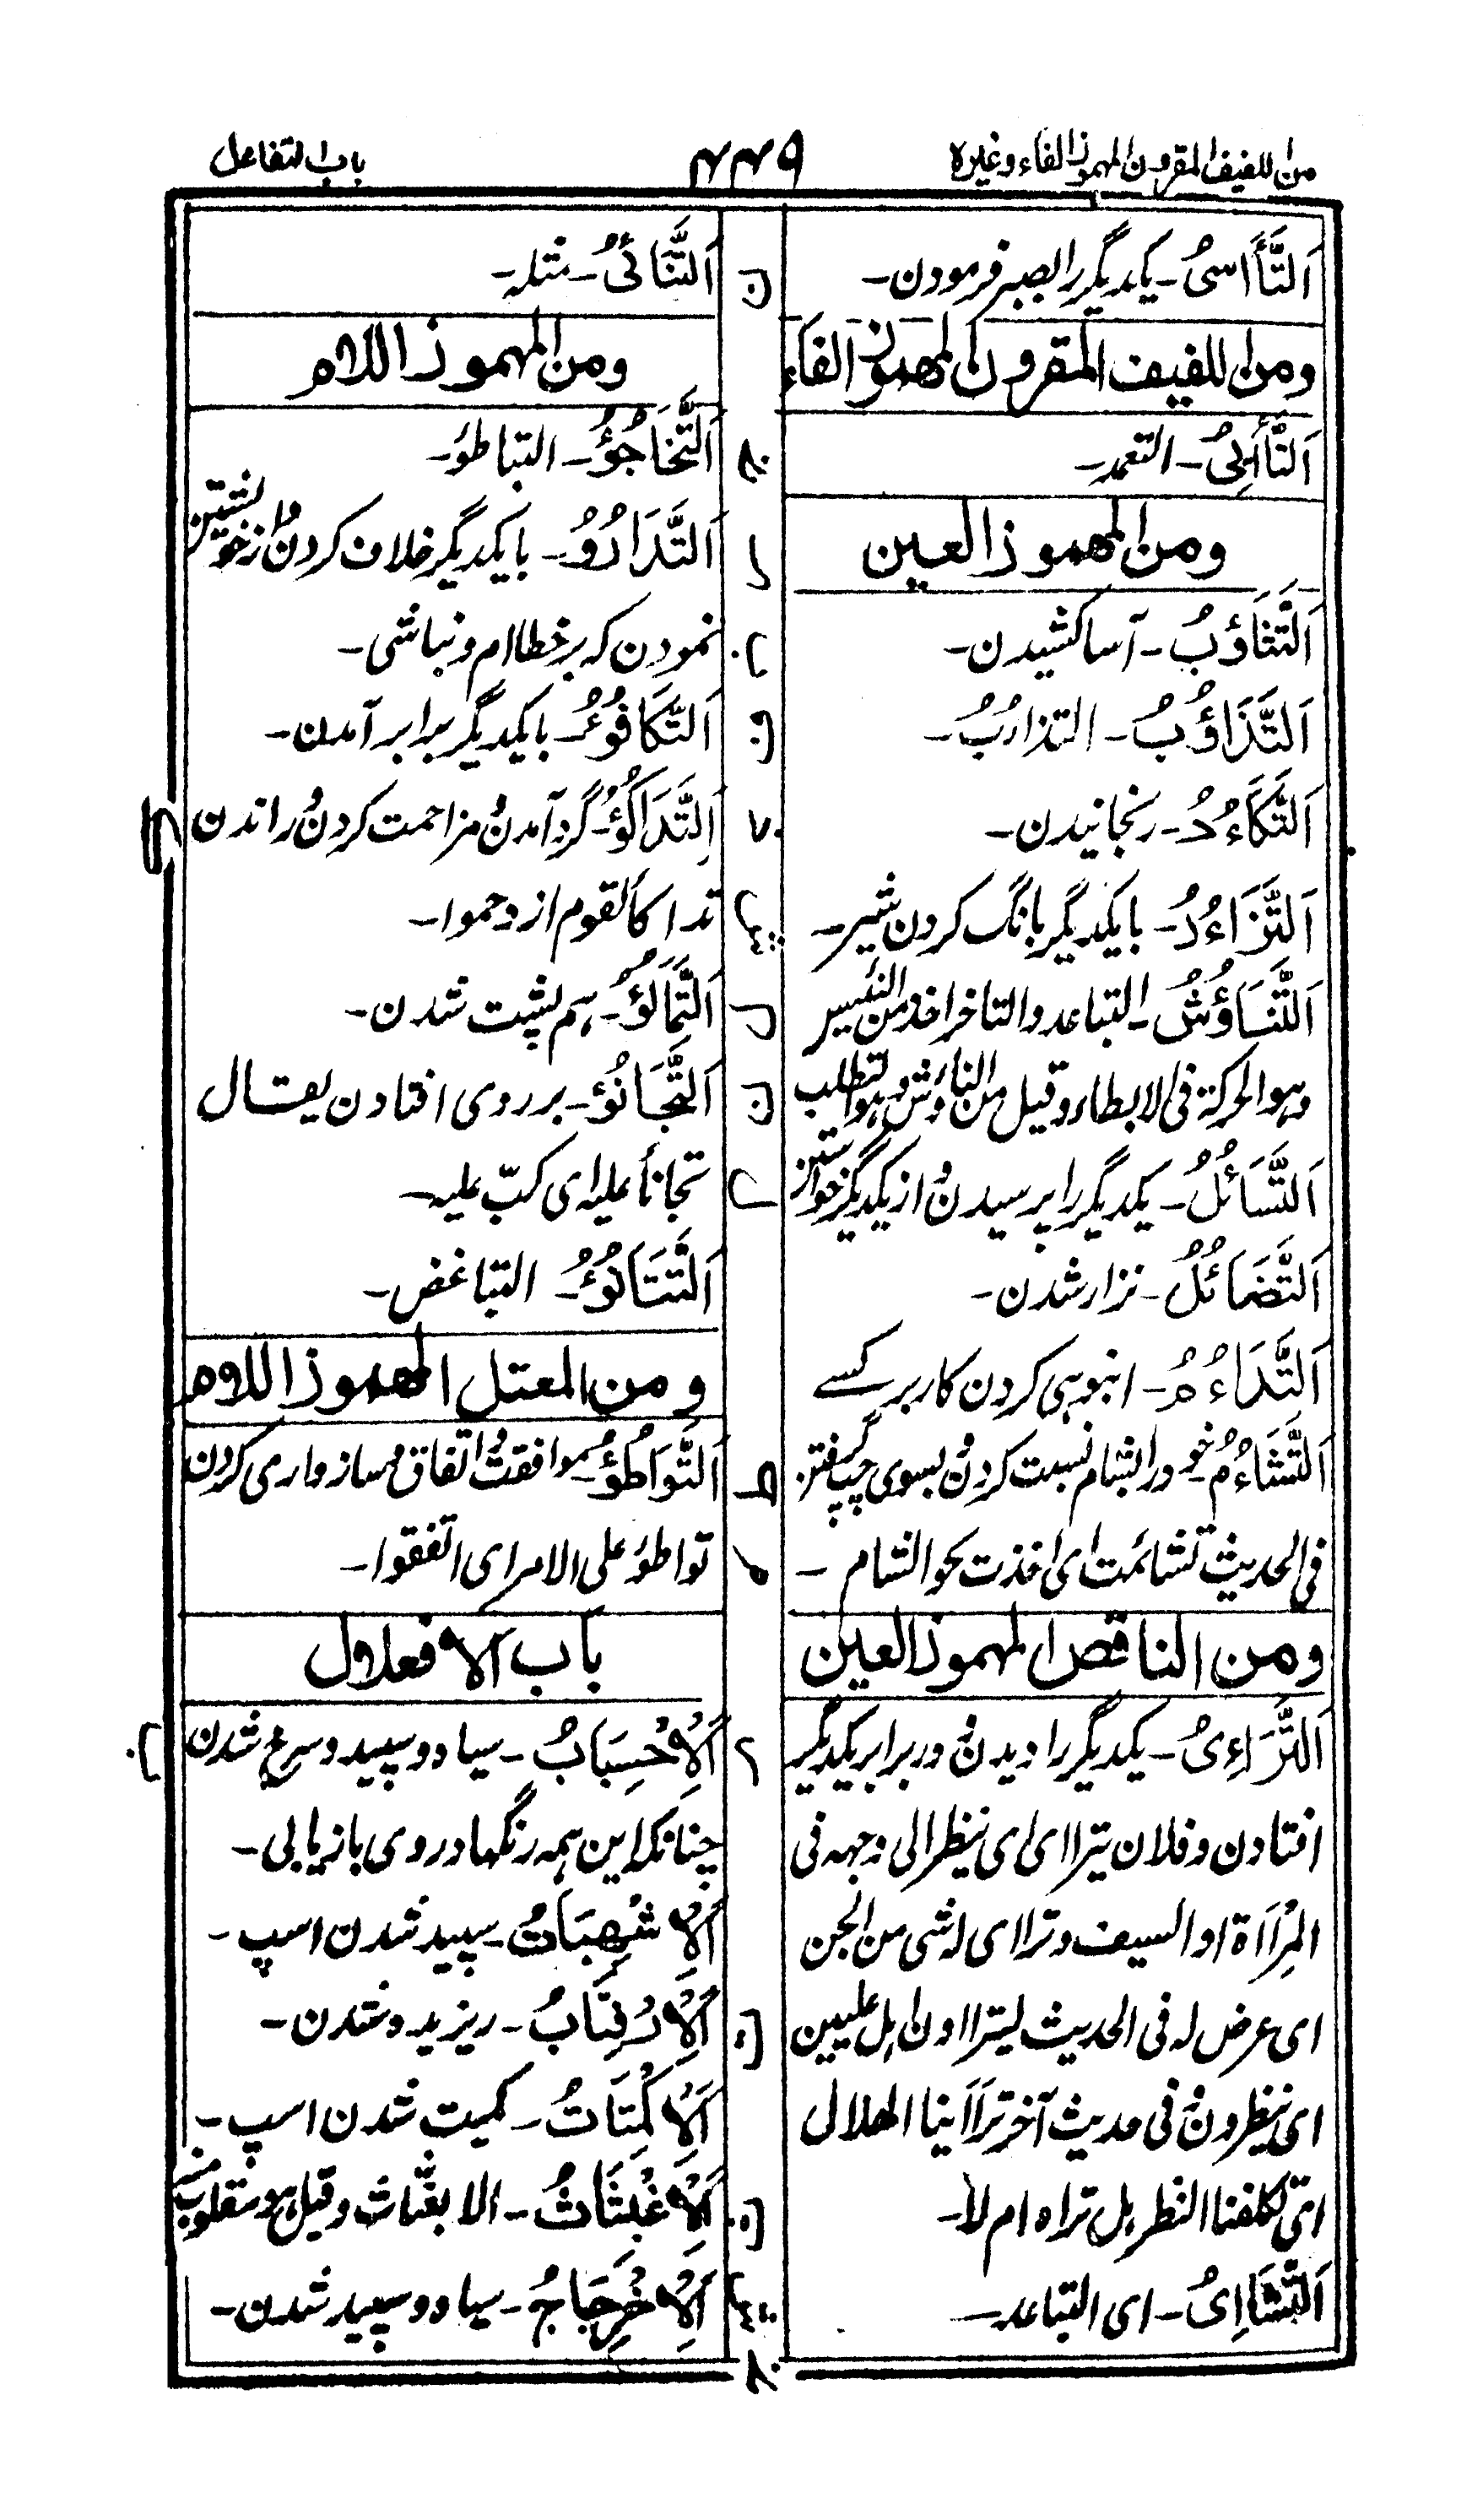 من اللفيف المقرون المهموز الفاء وغيره
۴۴۹
باب التفاعل
اَلتَّأَاسِیُ۔ یکدیگر را بصبر فرمودن۔
ومن اللفیف المقرون المهموز الفاء
اَلتَّأَیِیُ۔ التعمد۔
ومن المهموز العین
اَلتَّثَاؤُبُ۔ آسا کشیدن۔
اَلتَّذَاؤُبُ۔ التذارُبُ۔
اَلتَّکَاءُدُ۔ رنجانیدن۔
اَلتَّزَاءُدُ۔ بایکدیگر بانگ کردن شیر۔
اَلتَّنَاؤُشُ۔ التباعد والتاخر اخذ من النئیس
وہو الحرکة فی الابطاء وقیل من النأوش وہو الطلب
اَلتَّسَائُلُ۔ یکدیگر را پرسیدن و از یکدیگر خواستن
اَلتَّضَائُلُ۔ نزار شدن۔
اَلتَّدَاءُمُ۔ انبوہی کردن کار بر کسے
اَلتَّشَاءُمُ۔ خود را بشام نسبت کردن و بسوی چپ گرفتن
فی الحدیث تشائمت ای اخذت نحو الشام۔
ومن الناقص المهموز العین
اَلتَّرَاءِیُ۔ یکدیگر را دیدن و در برابر یکدیگر
افتادن و فلان یتراای ای ینظر الی وجهہ فی
المِرْاٰاة او السیف وتراای لہ شی من الجن
ای عرض لہ فی الحدیث لیتراا ون اہل علیین
ای ینظرون و فی حدیث آخر تَرَاٰاینا الهلال
ای تکلفنا النظر ہل تراہ ام لا۔
اَلتَّشَااِیُ۔ ای التباعد۔
اَلتَّنَائِیُ۔ مثلہ۔
ومن المهموز اللام
اَلتَّخَاجُؤُ۔ التباطؤ۔
اَلتَّدَارُؤُ۔ بایکدیگر خلاف کردن و از خویشتن
نمودن کہ بر خطاام و نباشی۔
اَلتَّکَافُوءُ۔ بایکدیگر برابر آمدن۔
اَلتَّدَاکُؤُ۔ گرد آمدن و مزاحمت کردن و راندن
تداکأ القوم ازدحموا۔
اَلتَّمَالُؤُ۔ ہم پشت شدن۔
اَلتَّجَانُؤُ۔ بر روی افتادن یقال
تجانأ علیہ ای کبّ علیہ۔
اَلتَّشَانُوءُ۔ التباغض۔
ومن المعتل المهموز اللام
اَلتَّوَاطُؤُ۔ موافقت و اتفاق و سازواری کردن
تواطؤ علی الامر ای اتفقوا۔
باب الافعلال
اَلْاِحْسِبَابُ۔ سیاہ و سپید و سرخ شدن
چنانکہ این ہمہ رنگها در وی بازیابی۔
اَلْاِشْهِبَابُ۔ سپید شدن اسپ۔
اَلْاِرْفِتَاتُ۔ ریزیدہ شدن۔
اَلْاِکْمِتَاتُ۔ کمیت شدن اسپ۔
اَلْاِغْبِثَاثُ۔ الابغثاث وقیل ہو مقلوب منہ
اَلْاِخْرِجَاجُ۔ سیاہ و سپید شدن۔